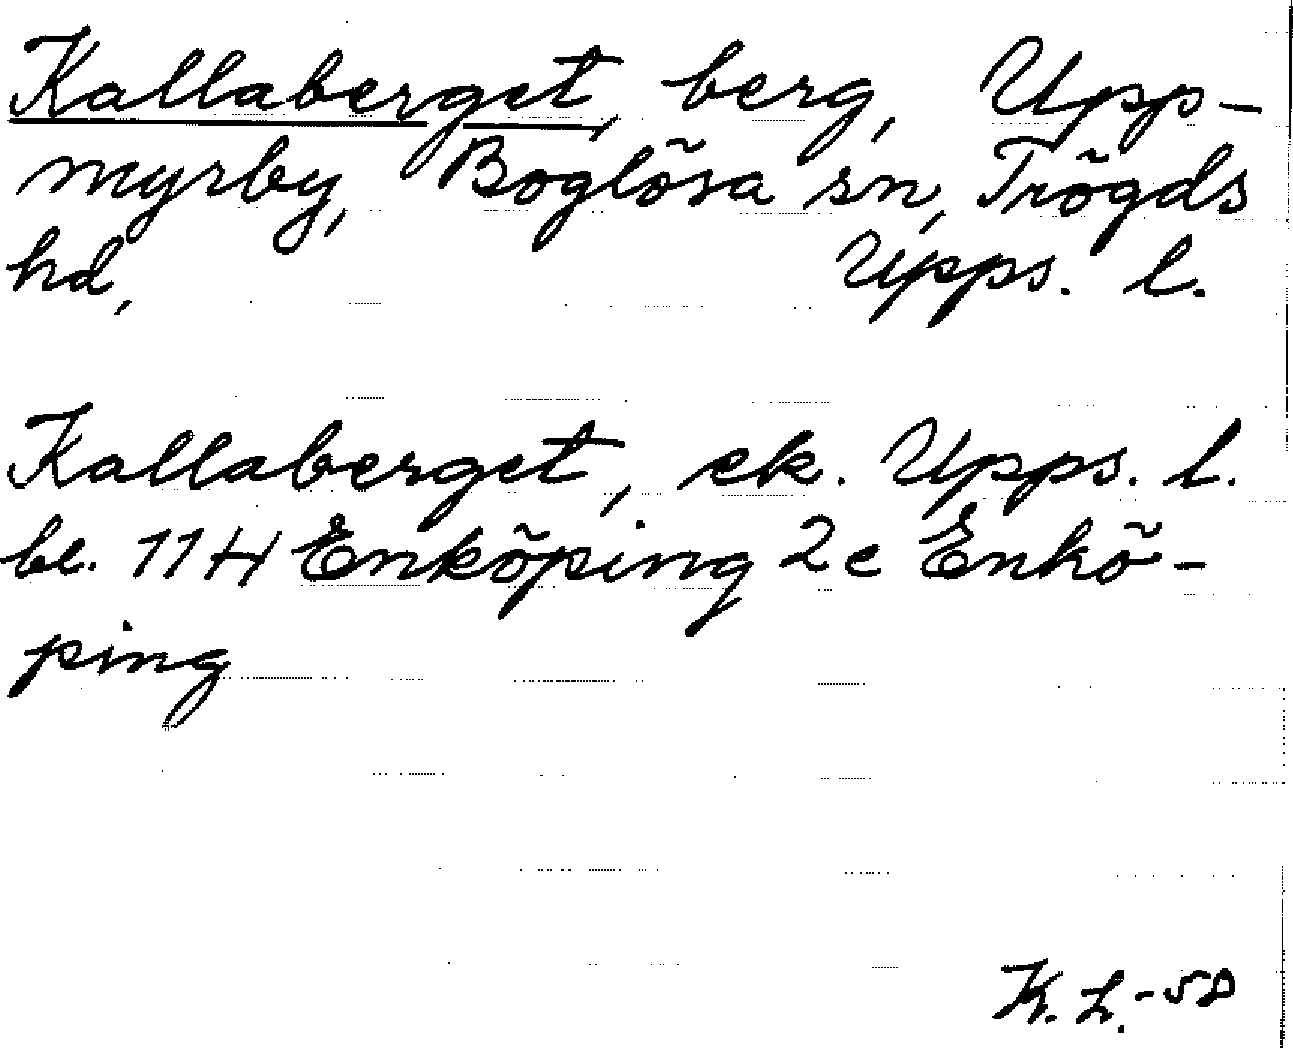 Kallaberget, berg, Upp-
myrby, Boglösa sn, Trögds
hd, Upps. l.
Kallaberget, ek. Upps. l.
bl. 11H Enköping 2e Enkö-
ping
K. L. -58